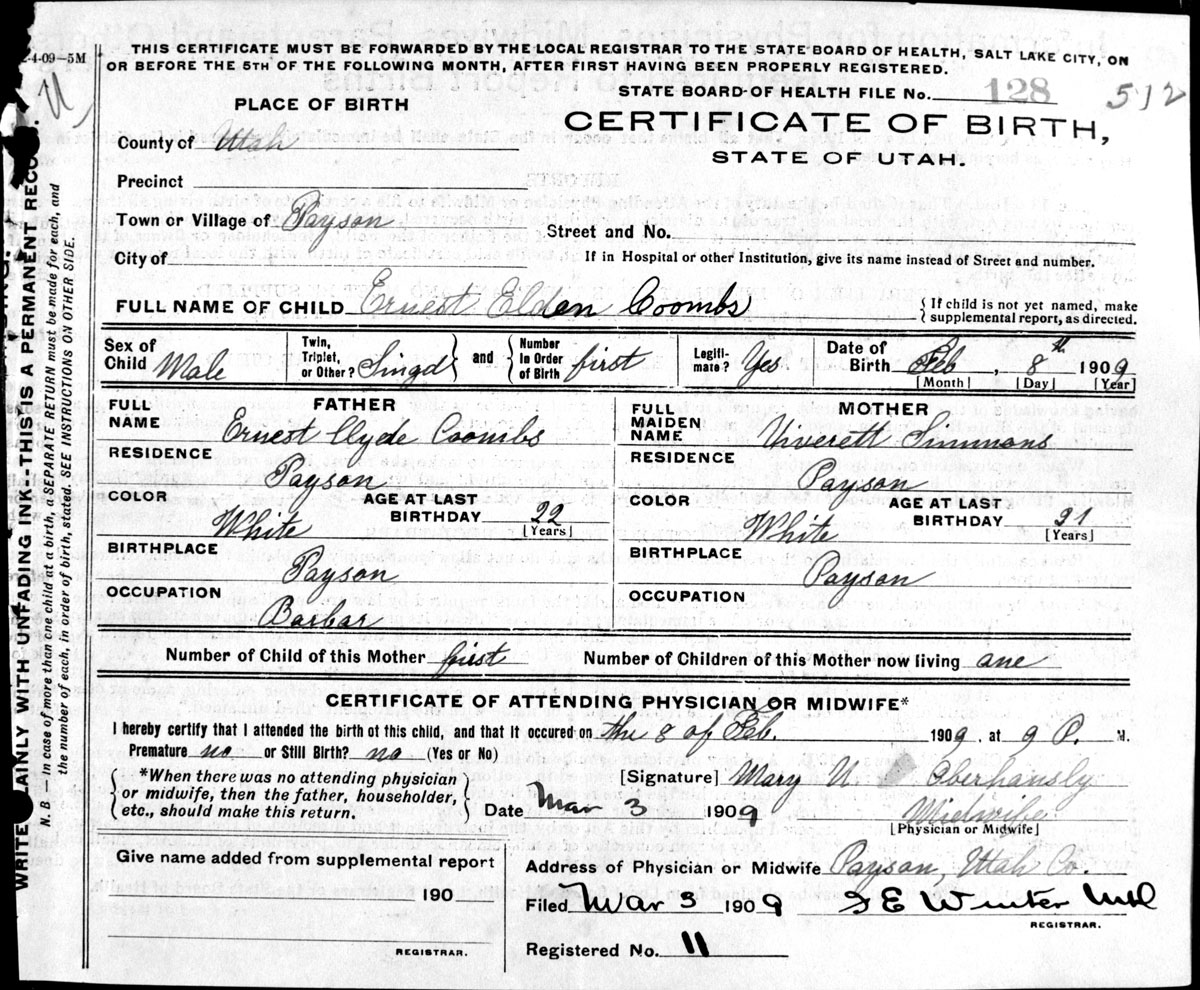 2-4-09—5M
THIS CERTIFICATE MUST BE FORWARDED BY THE LOCAL REGISTRAR TO THE STATE BOARD OF HEALTH, SALT LAKE CITY, ON
OR BEFORE THE 5TH OF THE FOLLOWING MONTH, AFTER FIRST HAVING BEEN PROPERLY REGISTERED.
STATE BOARD OF HEALTH FILE No. 128 512
PLACE OF BIRTH
CERTIFICATE OF BIRTH,
STATE OF UTAH.
County of Utah
Precinct
Town or Village of Payson
Street and No.
City of
If in Hospital or other Institution, give its name instead of Street and number.
FULL NAME OF CHILD Ernest Eldon Coombs
{If child is not yet named, make
supplemental report, as directed.
Sex of Child Male
Twin, Triplet, or Other? Singel
and
Number In Order of Birth first
Legitimate? Yes
Date of Birth Feb, 8th 1909
[Month] [Day] [Year]
FATHER
FULL NAME Ernest Clyde Coombs
RESIDENCE
Payson
COLOR White
AGE AT LAST BIRTHDAY 22
[Years]
BIRTHPLACE
Payson
OCCUPATION
Barbar
MOTHER
FULL MAIDEN NAME Unverett Simmons
RESIDENCE
Payson
COLOR White
AGE AT LAST BIRTHDAY 21
[Years]
BIRTHPLACE
Payson
OCCUPATION
Number of Child of this Mother first
Number of Children of this Mother now living one
CERTIFICATE OF ATTENDING PHYSICIAN OR MIDWIFE*
I hereby certify that I attended the birth of this child, and that it occured on the 8 of Feb. 1909, at 9 P. M.
Premature no or Still Birth? no (Yes or No)
*When there was no attending physician
or midwife, then the father, householder,
etc., should make this return.
[Signature] Mary U. Oberhansly
Date Mar 3 1909
Midwife
[Physician or Midwife]
Give name added from supplemental report
190
REGISTRAR.
Address of Physician or Midwife Payson, Utah Co.
Filed Mar 3 1909
REGISTRAR.
Registered No. 11
WRITE PLAINLY WITH UNFADING INK—THIS IS A PERMANENT RECORD.
N. B.—In case of more than one child at a birth, a SEPARATE RETURN must be made for each, and
the number of each, in order of birth, stated. SEE INSTRUCTIONS ON OTHER SIDE.